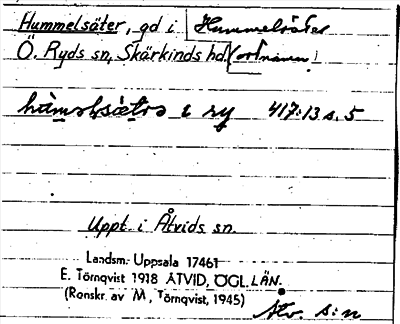 Hummelsäter, gd i Hummelsäter
Ö. Ryds sn, Skärkinds hd (ortnamn)
i ry 417:13 s. 5
Uppt. i Åtvids sn.
Landsm. Uppsala 17461
E. Törnqvist 1918 ÅTVID, ÖGL. LÄN.
(Ronskr. av M. Törnqvist, 1945)
Åtv. s:n